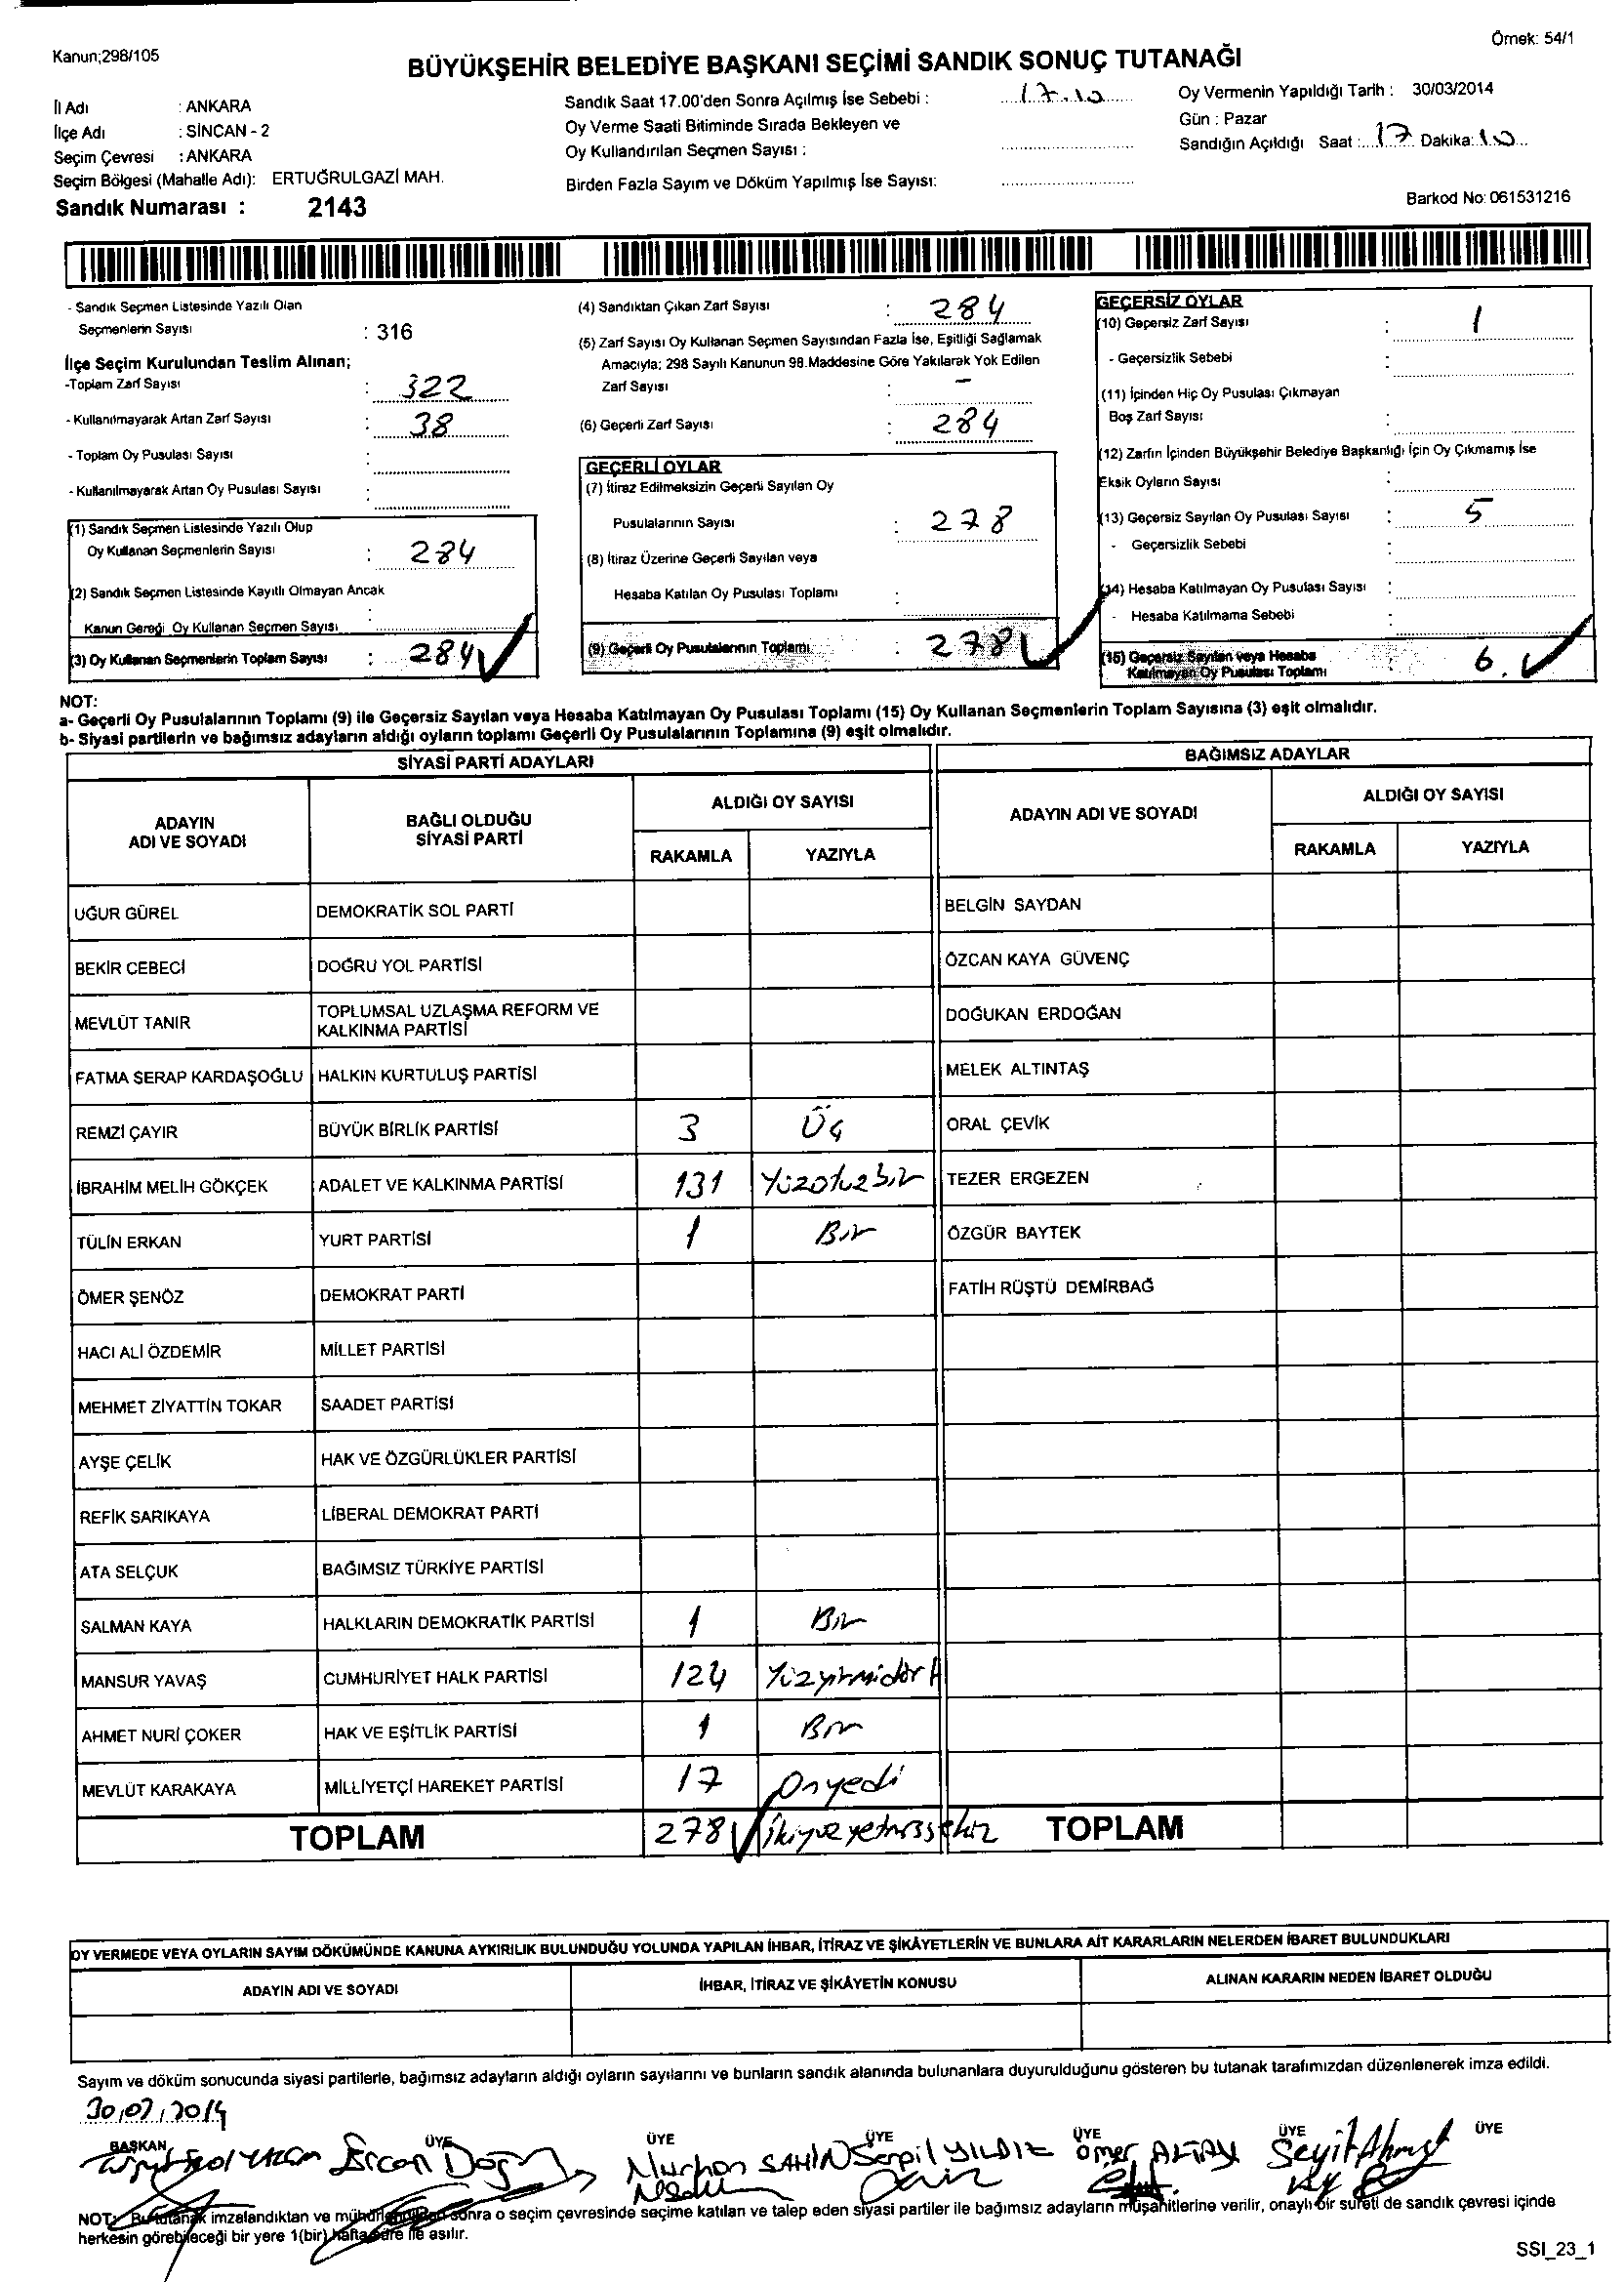 Kanun;298/105
Örnek: 54/1
BÜYÜKŞEHİR BELEDİYE BAŞKANI SEÇİMİ SANDIK SONUÇ TUTANAĞI
İl Adı : ANKARA
İlçe Adı : SİNCAN - 2
Seçim Çevresi : ANKARA
Seçim Bölgesi (Mahalle Adı): ERTUĞRULGAZİ MAH.
Sandık Numarası : 2143
Sandık Saat 17.00'den Sonra Açılmış İse Sebebi : 17.10
Oy Verme Saati Bitiminde Sırada Bekleyen ve
Oy Kullandırılan Seçmen Sayısı :
Birden Fazla Sayım ve Döküm Yapılmış İse Sayısı:
Oy Vermenin Yapıldığı Tarih : 30/03/2014
Gün : Pazar
Sandığın Açıldığı Saat : 17 Dakika: 10
Barkod No: 061531216
- Sandık Seçmen Listesinde Yazılı Olan
Seçmenlerin Sayısı : 316
İlçe Seçim Kurulundan Teslim Alınan;
-Toplam Zarf Sayısı : 322
- Kullanılmayarak Artan Zarf Sayısı : 38
- Toplam Oy Pusulası Sayısı :
- Kullanılmayarak Artan Oy Pusulası Sayısı :
(1) Sandık Seçmen Listesinde Yazılı Olup
Oy Kullanan Seçmenlerin Sayısı : 284
(2) Sandık Seçmen Listesinde Kayıtlı Olmayan Ancak
Kanun Gereği Oy Kullanan Seçmen Sayısı :
(3) Oy Kullanan Seçmenlerin Toplam Sayısı : 284
(4) Sandıktan Çıkan Zarf Sayısı : 284
(5) Zarf Sayısı Oy Kullanan Seçmen Sayısından Fazla İse, Eşitliği Sağlamak
Amacıyla; 298 Sayılı Kanunun 98.Maddesine Göre Yakılarak Yok Edilen
Zarf Sayısı : -
(6) Geçerli Zarf Sayısı : 284
GEÇERLİ OYLAR
(7) İtiraz Edilmeksizin Geçerli Sayılan Oy
Pusulalarının Sayısı : 278
(8) İtiraz Üzerine Geçerli Sayılan veya
Hesaba Katılan Oy Pusulası Toplamı :
(9) Geçerli Oy Pusulalarının Toplamı : 278
GEÇERSİZ OYLAR
(10) Geçersiz Zarf Sayısı : 1
- Geçersizlik Sebebi :
(11) İçinden Hiç Oy Pusulası Çıkmayan
Boş Zarf Sayısı :
(12) Zarfın İçinden Büyükşehir Belediye Başkanlığı İçin Oy Çıkmamış İse
Eksik Oyların Sayısı :
(13) Geçersiz Sayılan Oy Pusulası Sayısı : 5
- Geçersizlik Sebebi :
(14) Hesaba Katılmayan Oy Pusulası Sayısı :
- Hesaba Katılmama Sebebi :
(15) Geçersiz Sayılan veya Hesaba
Katılmayan Oy Pusulası Toplamı : 6.
NOT:
a- Geçerli Oy Pusulalarının Toplamı (9) ile Geçersiz Sayılan veya Hesaba Katılmayan Oy Pusulası Toplamı (15) Oy Kullanan Seçmenlerin Toplam Sayısına (3) eşit olmalıdır.
b- Siyasi partilerin ve bağımsız adayların aldığı oyların toplamı Geçerli Oy Pusulalarının Toplamına (9) eşit olmalıdır.
SİYASİ PARTİ ADAYLARI
BAĞIMSIZ ADAYLAR
ADAYIN
ADI VE SOYADI
BAĞLI OLDUĞU
SİYASİ PARTİ
ALDIĞI OY SAYISI
RAKAMLA YAZIYLA
ADAYIN ADI VE SOYADI
ALDIĞI OY SAYISI
RAKAMLA YAZIYLA
UĞUR GÜREL DEMOKRATİK SOL PARTİ BELGİN SAYDAN
BEKİR CEBECİ DOĞRU YOL PARTİSİ ÖZCAN KAYA GÜVENÇ
MEVLÜT TANIR TOPLUMSAL UZLAŞMA REFORM VE
KALKINMA PARTİSİ DOĞUKAN ERDOĞAN
FATMA SERAP KARDAŞOĞLU HALKIN KURTULUŞ PARTİSİ MELEK ALTINTAŞ
REMZİ ÇAYIR BÜYÜK BİRLİK PARTİSİ 3 Üç ORAL ÇEVİK
İBRAHİM MELİH GÖKÇEK ADALET VE KALKINMA PARTİSİ 131 Yüzotuzbir TEZER ERGEZEN
TÜLİN ERKAN YURT PARTİSİ 1 Bir ÖZGÜR BAYTEK
ÖMER ŞENÖZ DEMOKRAT PARTİ FATİH RÜŞTÜ DEMİRBAĞ
HACI ALİ ÖZDEMİR MİLLET PARTİSİ
MEHMET ZİYATTİN TOKAR SAADET PARTİSİ
AYŞE ÇELİK HAK VE ÖZGÜRLÜKLER PARTİSİ
REFİK SARIKAYA LİBERAL DEMOKRAT PARTİ
ATA SELÇUK BAĞIMSIZ TÜRKİYE PARTİSİ
SALMAN KAYA HALKLARIN DEMOKRATİK PARTİSİ 1 Bir
MANSUR YAVAŞ CUMHURİYET HALK PARTİSİ 124 Yüzyirmidört
AHMET NURİ ÇOKER HAK VE EŞİTLİK PARTİSİ 1 Bir
MEVLÜT KARAKAYA MİLLİYETÇİ HAREKET PARTİSİ 17 Onyedi
TOPLAM 278 TOPLAM
OY VERMEDE VEYA OYLARIN SAYIM DÖKÜMÜNDE KANUNA AYKIRILIK BULUNDUĞU YOLUNDA YAPILAN İHBAR, İTİRAZ VE ŞİKÂYETLERİN VE BUNLARA AİT KARARLARIN NELERDEN İBARET BULUNDUKLARI
ADAYIN ADI VE SOYADI İHBAR, İTİRAZ VE ŞİKÂYETİN KONUSU ALINAN KARARIN NEDEN İBARET OLDUĞU
Sayım ve döküm sonucunda siyasi partilerle, bağımsız adayların aldığı oyların sayılarını ve bunların sandık alanında bulunanlara duyurulduğunu gösteren bu tutanak tarafımızdan düzenlenerek imza edildi.
BAŞKAN ÜYE ÜYE ÜYE ÜYE ÜYE ÜYE
Ercan Nurhan SAHİN Serpil YILDIZ Ömer Seyit Ahmet
NOT: Bu tutanak imzalandıktan ve mühürlendikten sonra o seçim çevresinde seçime katılan ve talep eden siyasi partiler ile bağımsız adayların müşahitlerine verilir, onaylı bir sureti de sandık çevresi içinde
herkesin görebileceği bir yere 1(bir) hafta süre ile asılır.
SSI_23_1